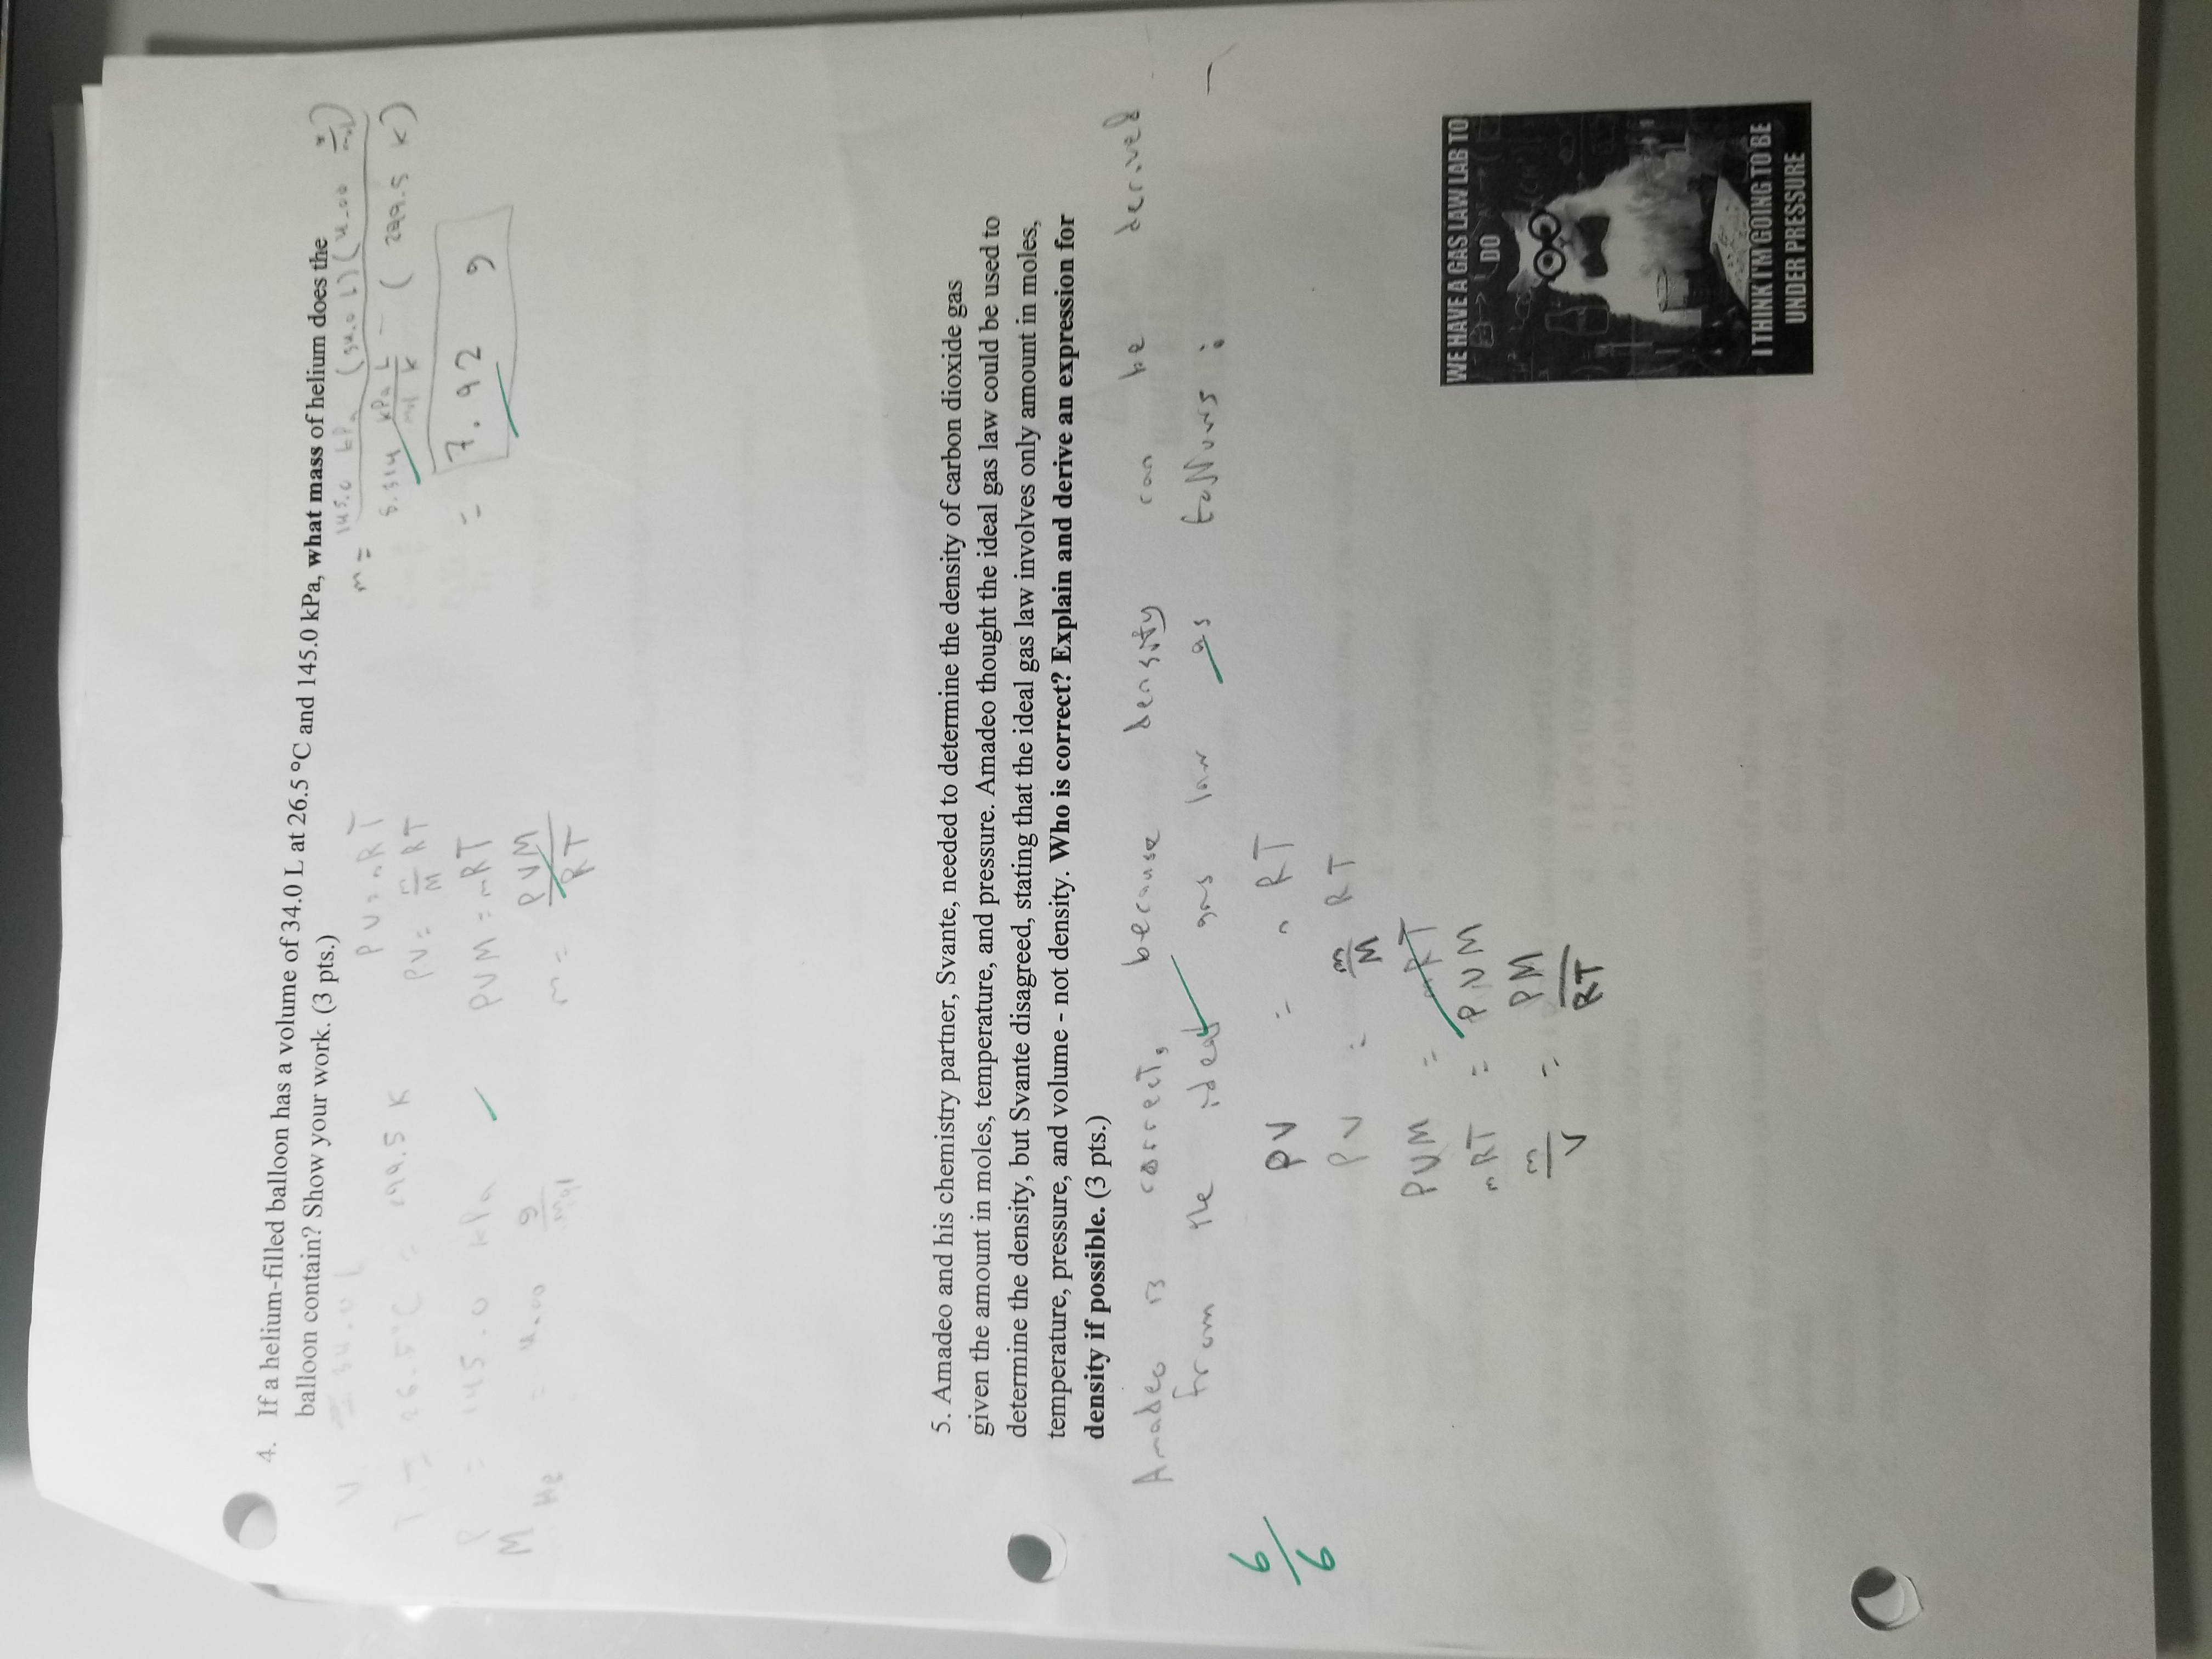 4. If a helium-filled balloon has a volume of 34.0 L at 26.5 °C and 145.0 kPa, what mass of helium does the
balloon contain? Show your work. (3 pts.)
V = 34.0 L
T = 26.5°C = 299.5 K
P = 145.0 kPa
M He = 4.00 g/mol
PV = nRT
PV = m/M RT
PVM = mRT
m = PVM/RT
m = 145.0 kPa (34.0 L)(4.00 g/mol)
8.314 kPa L/mol K (299.5 K)
= 7.92 g
5. Amadeo and his chemistry partner, Svante, needed to determine the density of carbon dioxide gas
given the amount in moles, temperature, and pressure. Amadeo thought the ideal gas law could be used to
determine the density, but Svante disagreed, stating that the ideal gas law involves only amount in moles,
temperature, pressure, and volume - not density. Who is correct? Explain and derive an expression for
density if possible. (3 pts.)
Amadeo is correct, because density can be derived
from the ideal gas law as follows:
6/6
PV = nRT
PV = m/M RT
PVM = mRT
mRT = PVM
m/V = PM/RT
WE HAVE A GAS LAW LAB TO
DO
I THINK I'M GOING TO BE
UNDER PRESSURE